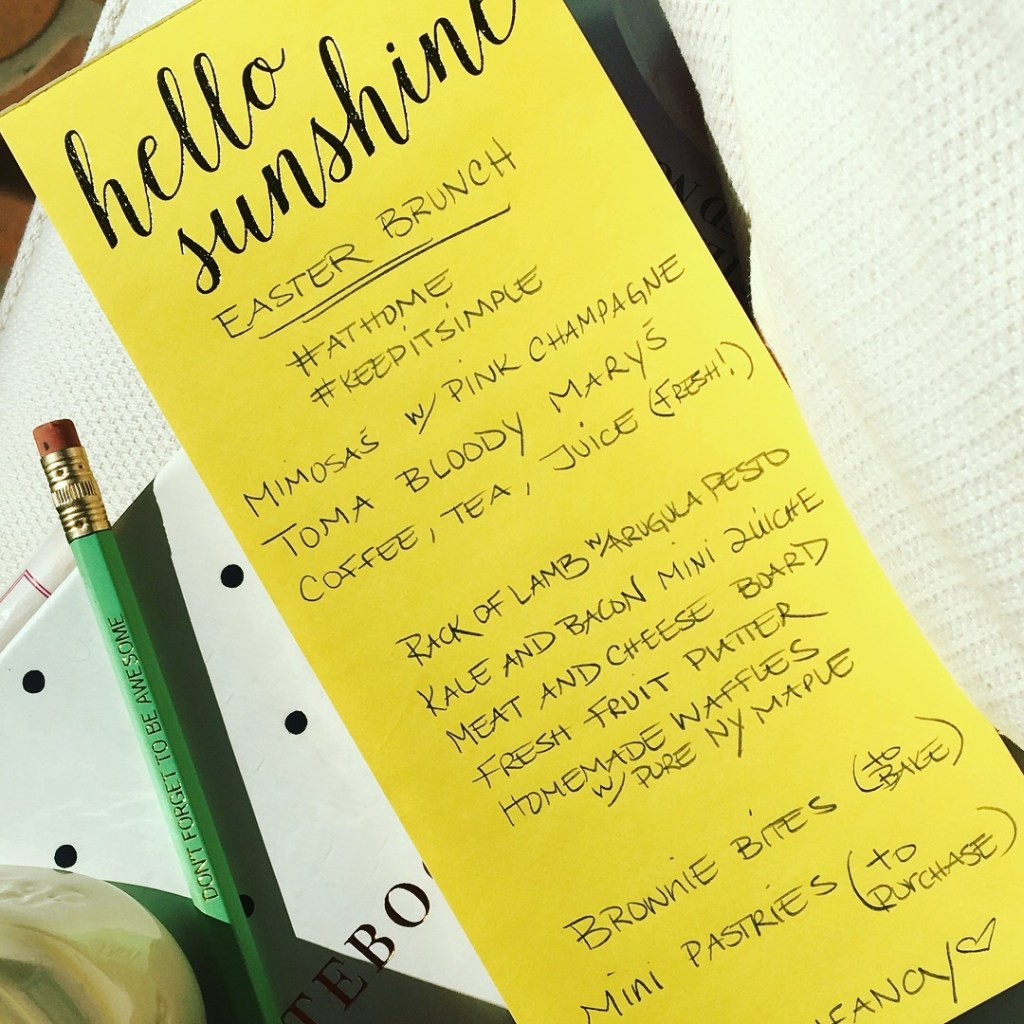 hello
sunshine
EASTER BRUNCH
#ATHOME
#KEEPITSIMPLE
MIMOSAS w/ PINK CHAMPAGNE
TOMA BLOODY MARYS
COFFEE, TEA, JUICE (FRESH!)
RACK OF LAMB w/ARUGULA PESTO
KALE AND BACON MINI QUICHE
MEAT AND CHEESE BOARD
FRESH FRUIT PLATTER
HOMEMADE WAFFLES
w/ PURE NY MAPLE
BROWNIE BITES (to BAKE)
MINI PASTRIES (to PURCHASE)
FANCY
DON'T FORGET TO BE AWESOME
TEBO